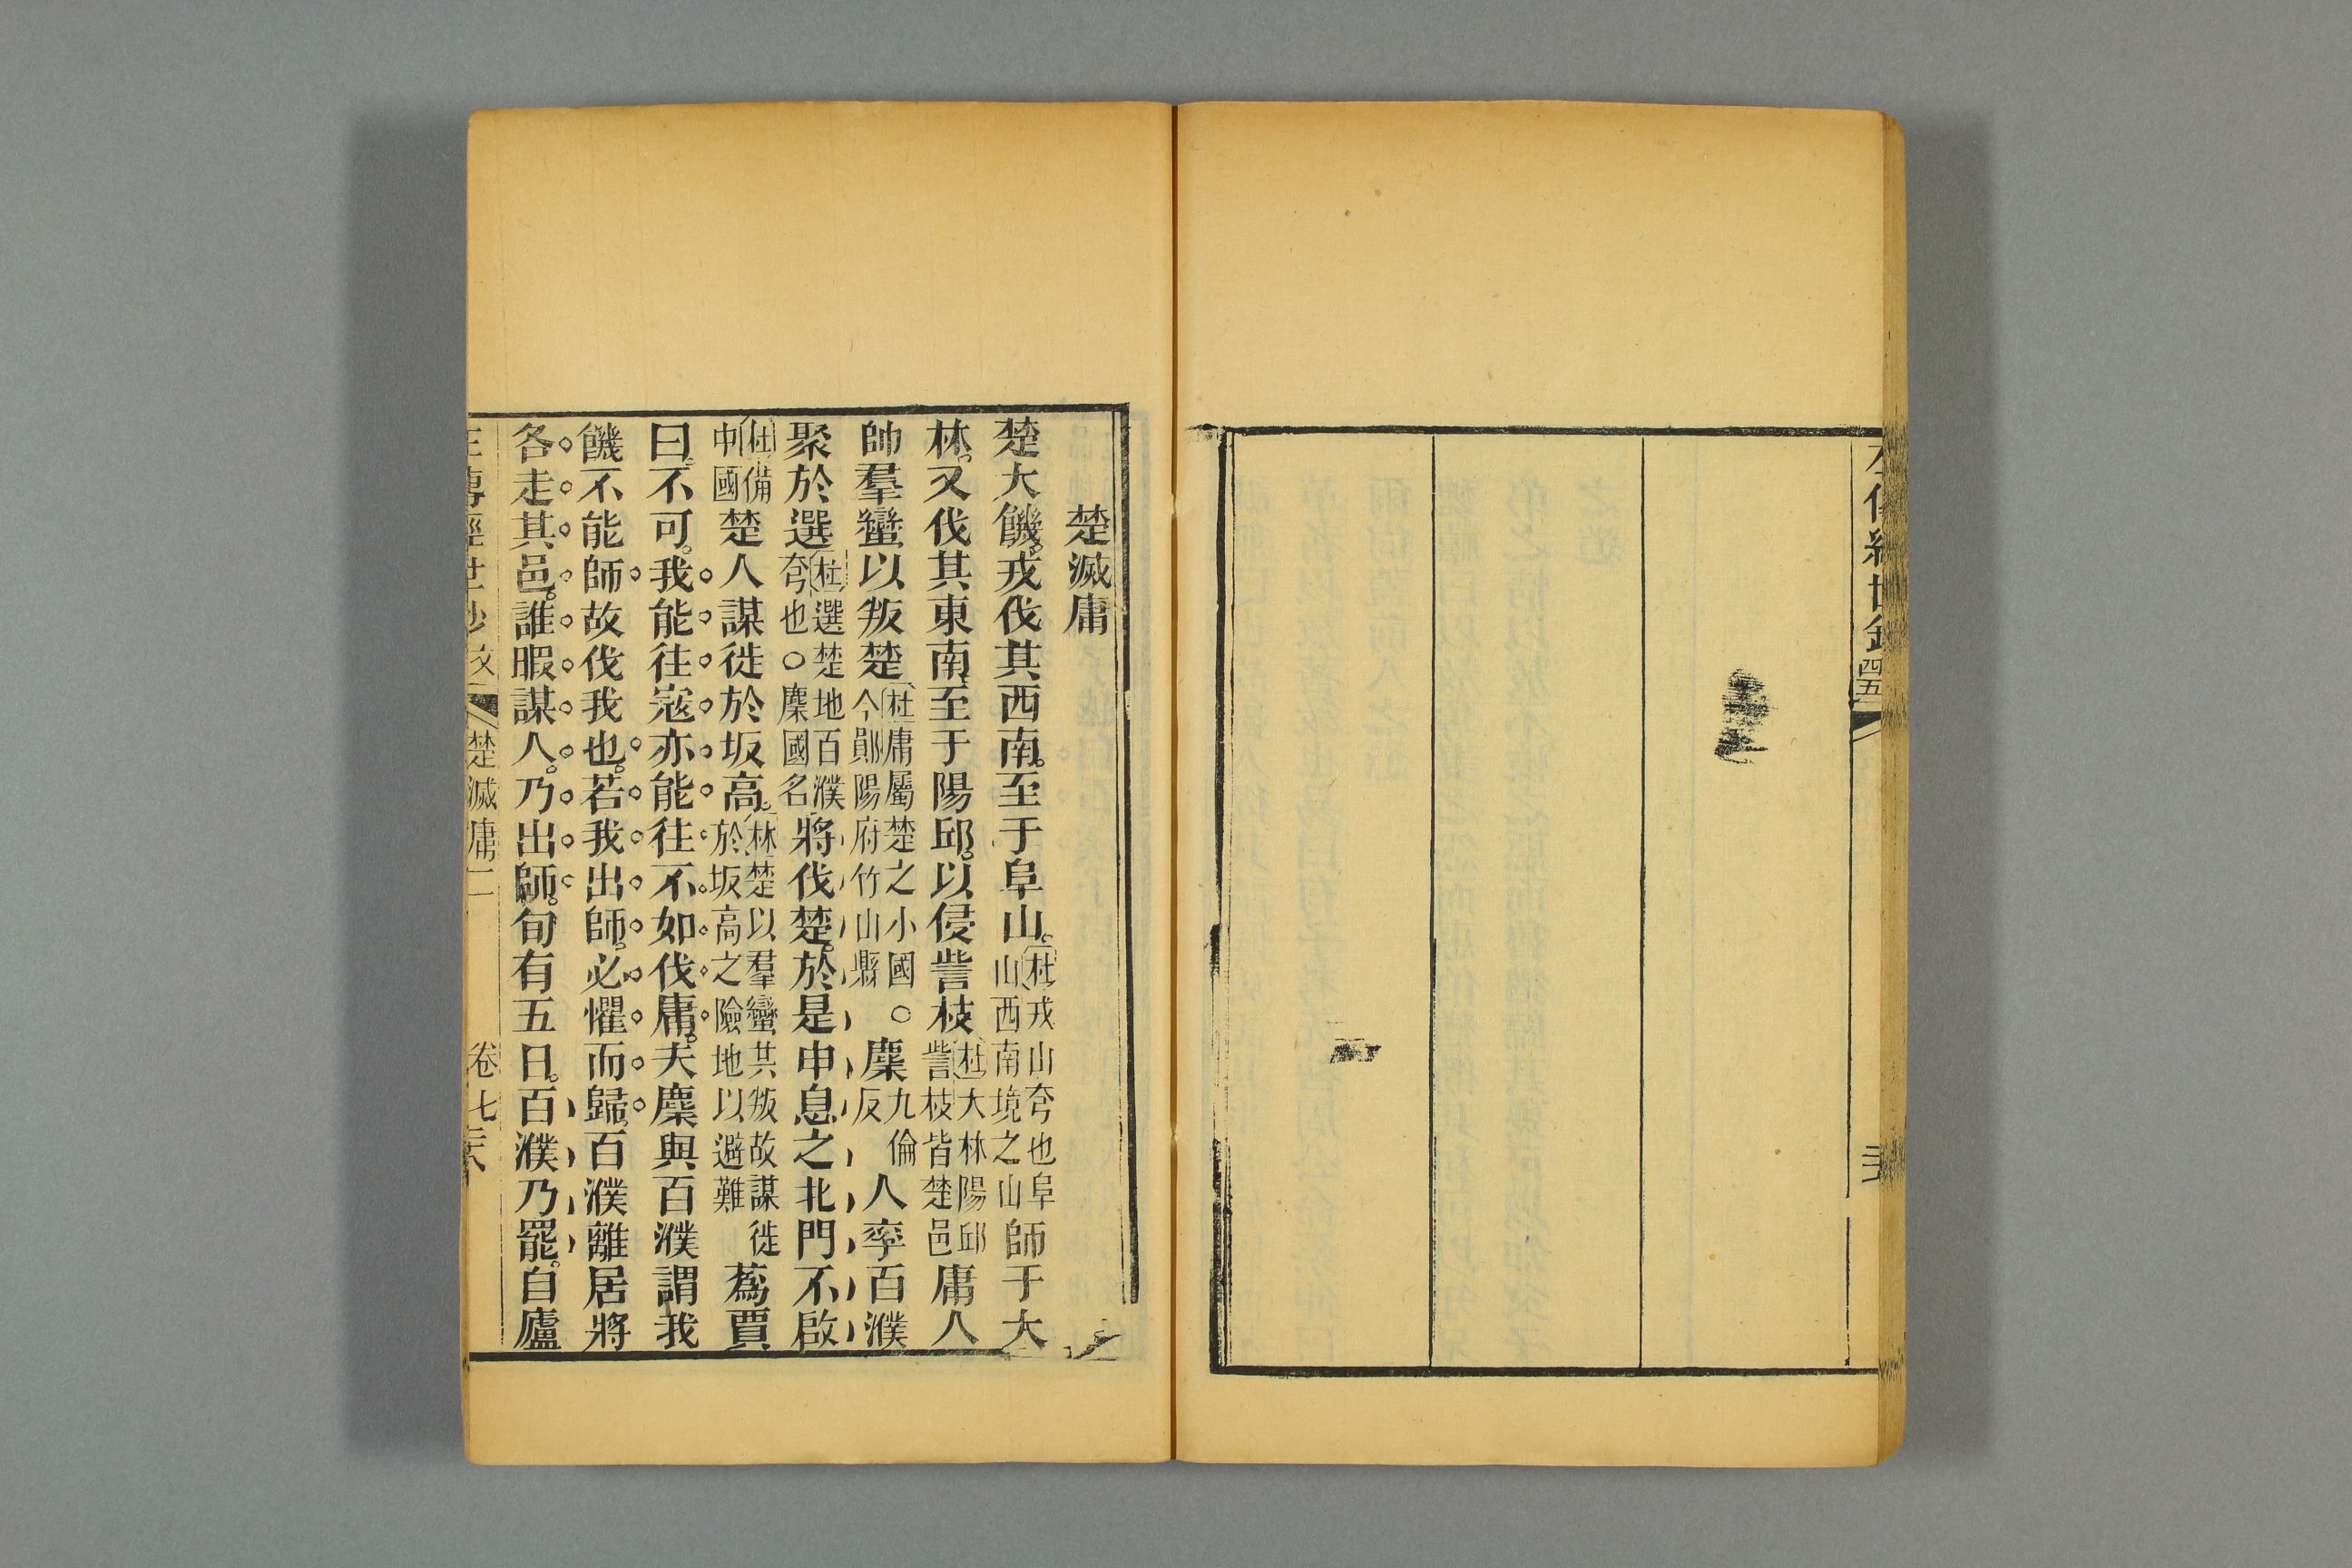 左傳經世鈔 四五
楚滅庸
楚大饑。戎伐其西南。至于阜山。杜戎山夸也阜山西南境之山師于大
林。又伐其東南。至于陽邱。以侵訾枝杜大林陽邱訾枝皆楚邑庸人
帥羣蠻以叛楚杜庸屬楚之小國○今鄖陽府竹山縣麇九倫反人率百濮
聚於選杜選楚地百濮夸也○麇國名將伐楚。於是申息之北門不啟
杜備中國楚人謀徙於坂高。林楚以羣蠻共叛故謀徙於坂高之險地以避難蒍賈
曰。不可。我能往寇亦能往。不如伐庸。夫麇與百濮謂我
饑不能師故伐我也。若我出師。必懼而歸。百濮離居將
各走其邑。誰暇謀人。乃出師。旬有五日。百濮乃罷。自廬
左傳經世鈔 文 楚滅庸一 卷七 三六